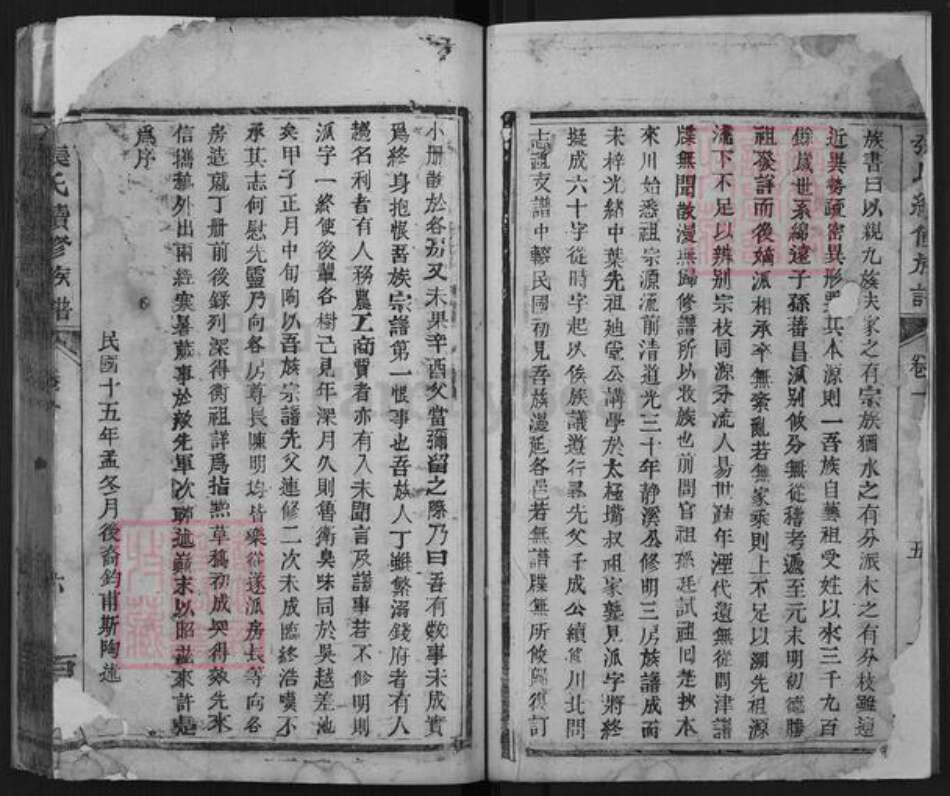 張氏續修族譜 卷一 五
族書曰以親九族夫家之有宗族猶水之有分派木之有分枝雖遠
近異勢疏密異形要其本源則一吾族自藝祖受姓以來三千九百
餘歲世系綿遠子孫蕃昌派別攸分無從稽考遞至元末明初德勝
祖發詳而後嫡派相承卒無紊亂若無家乘則上不足以溯先祖源
流下不足以辨别宗枝同源分流人易世疎年湮代遠無從問津譜
牒無聞散漫無歸修譜所以收族也前問官祖孫廷試祖囘楚抄本
來川始悉祖宗源流前清道光三十年静溪公修明三房族譜成而
未梓光緒中葉先祖廸堂公講學於太極嘴叔祖家塾見派字將終
擬成六十字從時字起以俟族議遵行暴先父子成公續修川北問
志祖支譜中輟民國初見吾族漫延各邑若無譜牒無所攸歸復訂
小册散於各房又未果辛酉父當彌留之際乃曰吾有數事未成實
爲終身抱恨吾族宗譜第一恨事也吾族人丁雖繁溺錢府者有人
趨名利者有人務農工商賈者亦有人未聞言及譜事若不修明則
派字一終使後觀各樹己見年深月久則魯衛臭味同於吳越差池
矣甲子正月中旬陶以吾族宗譜先父連修二次未成臨終浩嘆不
承其志何慰先靈乃向各房尊長陳明均皆樂從遂派房長等向各
房造就丁册前後録列深得衡祖詳爲指點草稿初成與得欵先來
信攜楚外出兩經寒暑蕆事於欵先軍次聊述巔末以昭茲來許是
爲序
民國十五年孟冬月後裔鈞甫斯陶述
張氏續修族譜 卷一 六